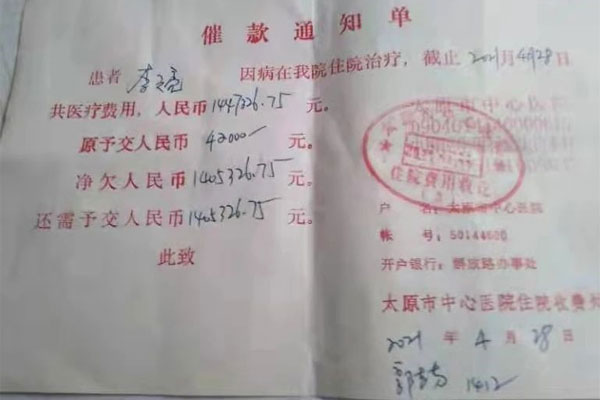 催款通知单
患者 李 因病在我院住院治疗，截止 2021年4月28日
共医疗费用，人民币 1447326.75 元。
原予交人民币 42000 元。
净欠人民币 1405326.75 元。
还需予交人民币 1405326.75 元。
此致
太原市中心医院
住院费用收讫
户 名：太原市中心医院
帐 号：50144600
开户银行：解放路办事处
太原市中心医院住院收费
2021 年 4 月 28 日
1412